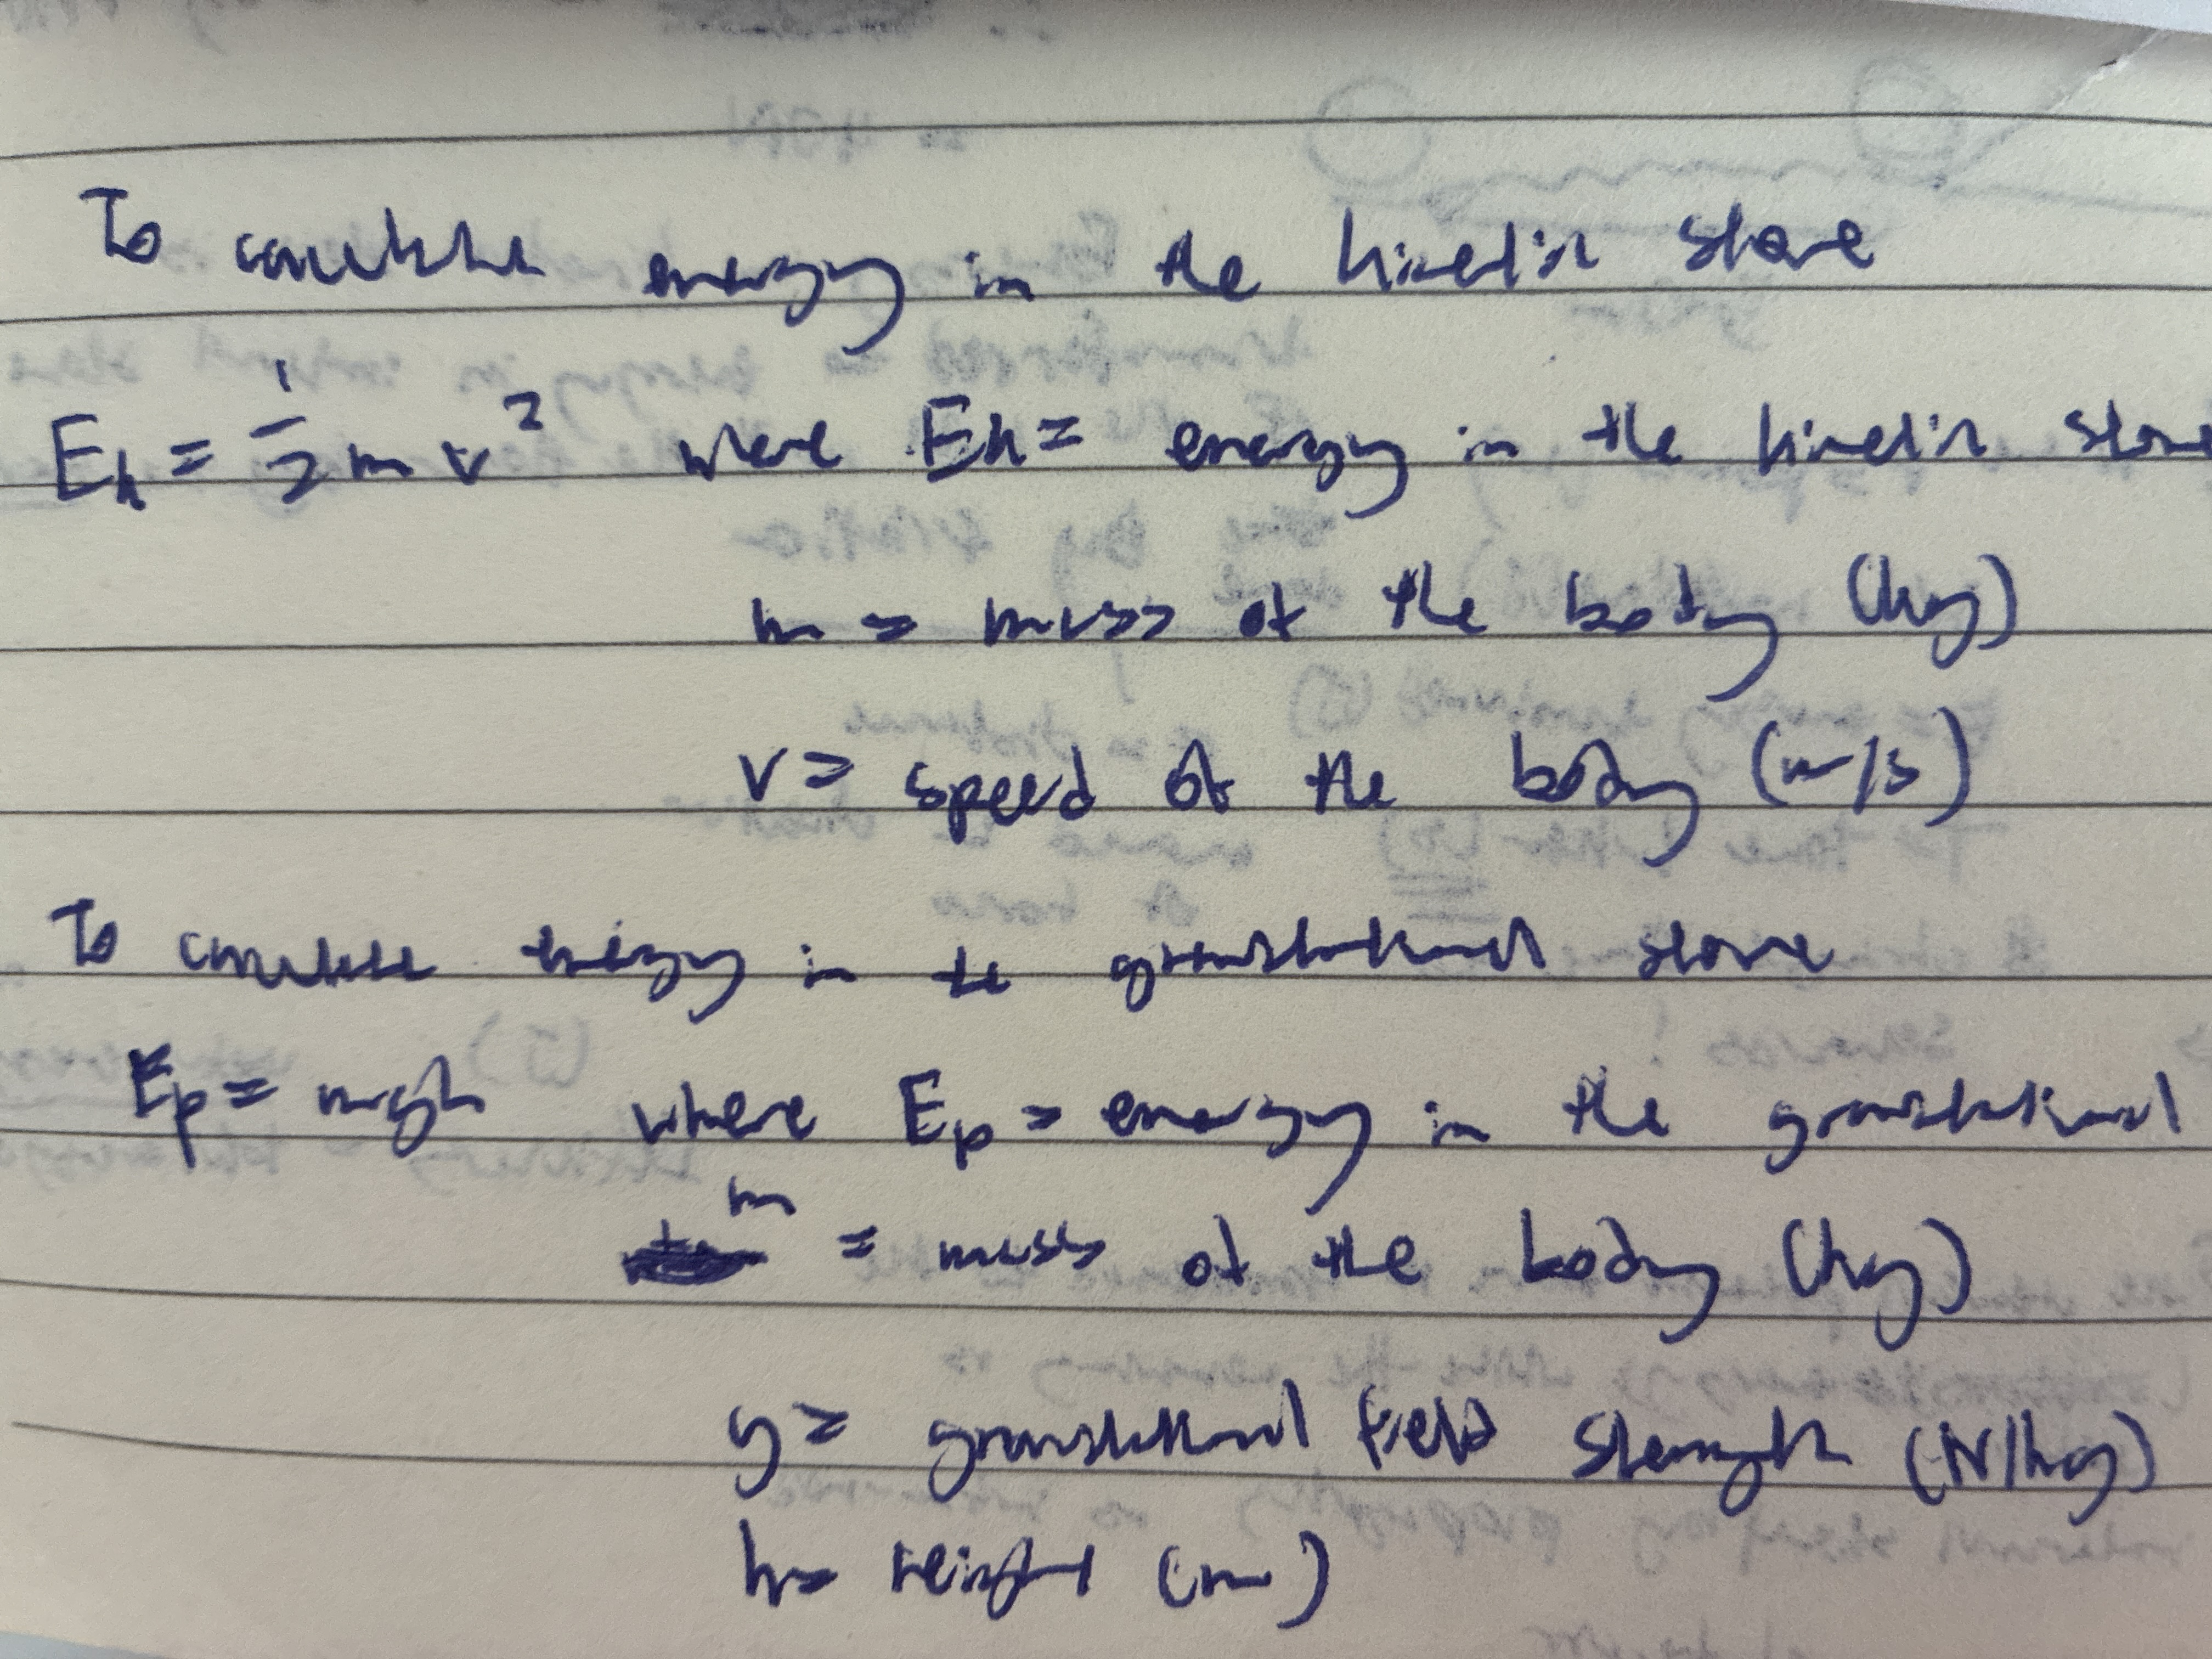 To calculate energy in the kinetic store
Ek = 1/2 m v² where Ek = energy in the kinetic store
m = mass of the body (kg)
v = speed of the body (m/s)
To calculate energy in the gravitational store
Ep = mgh where Ep = energy in the gravitational
m = mass of the body (kg)
g = gravitational field strength (N/kg)
h = height (m)